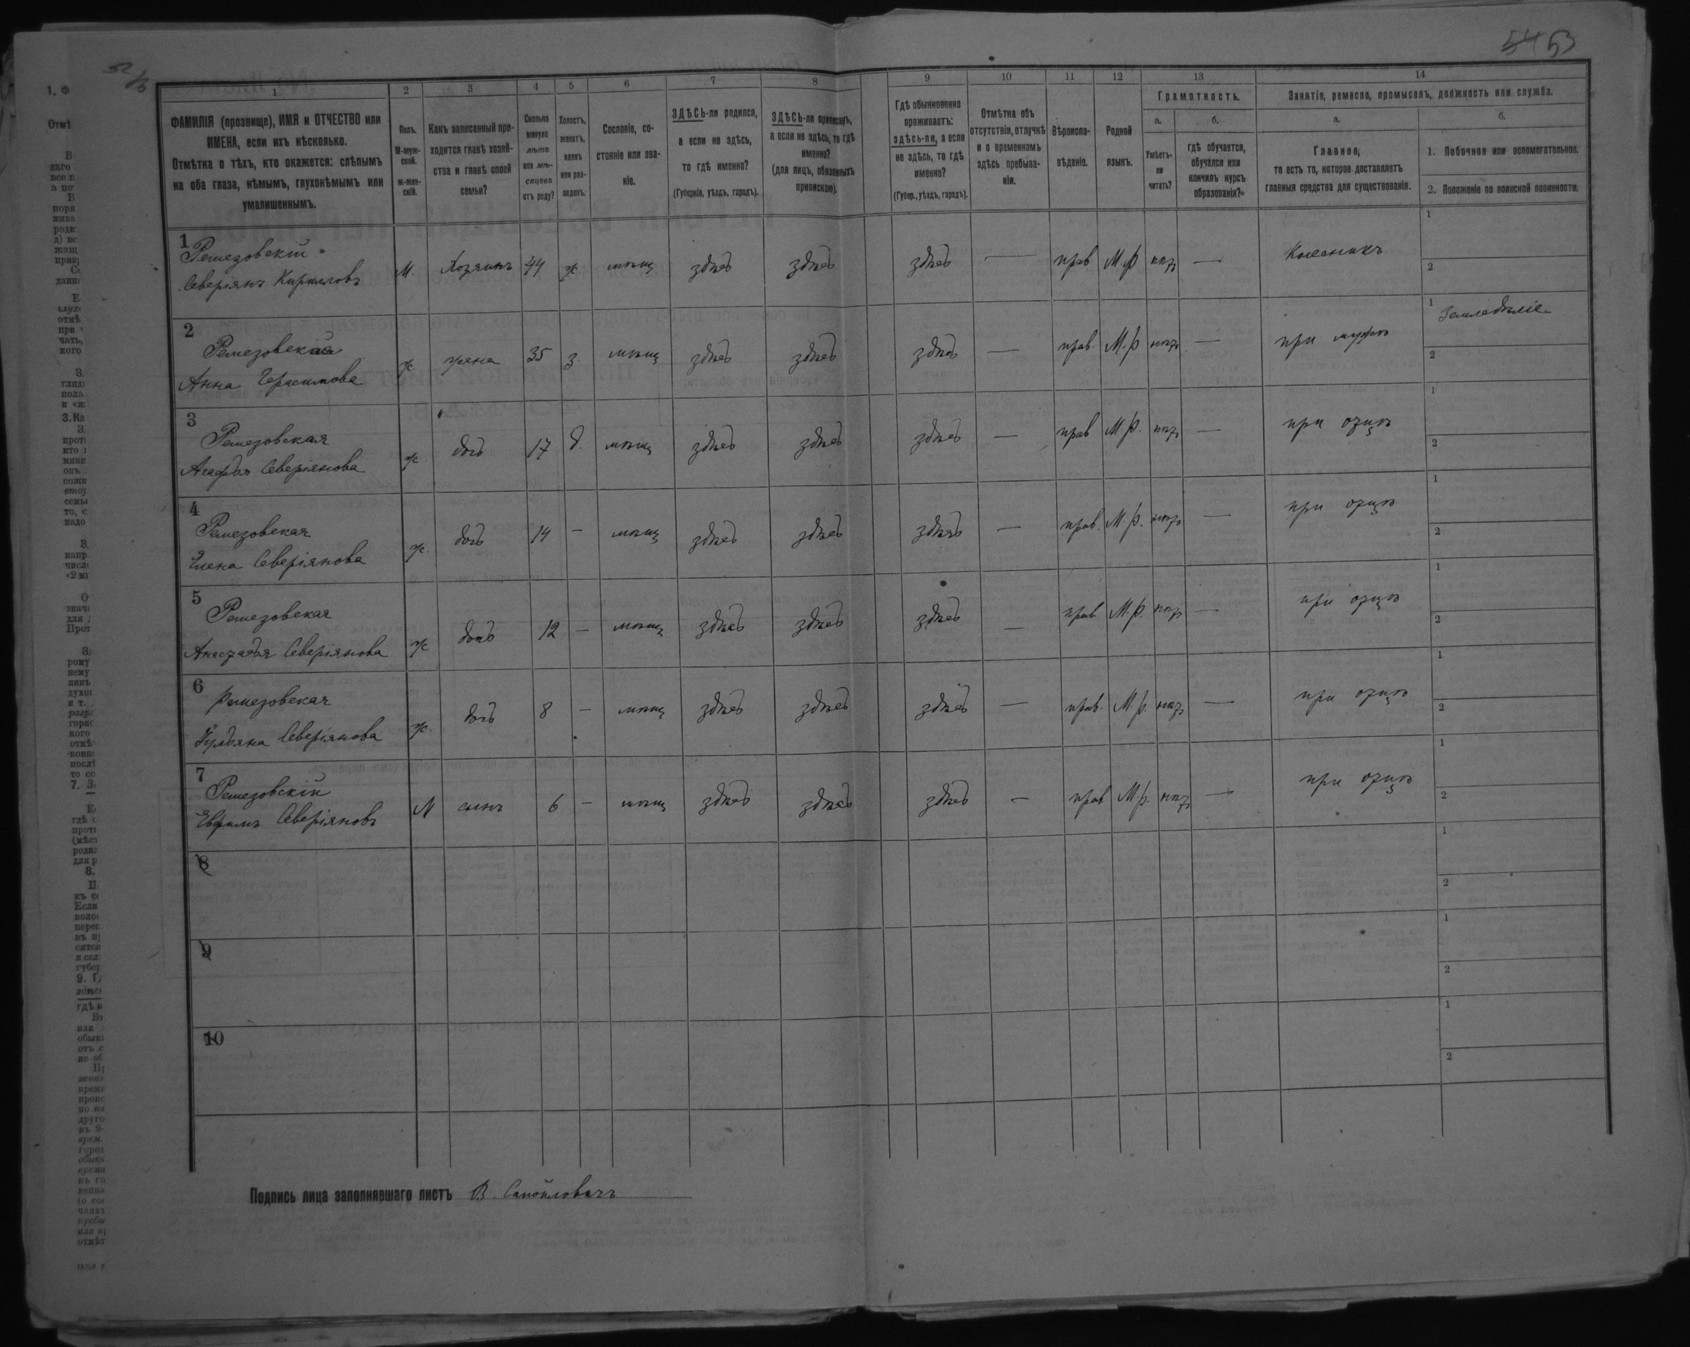 54 53
1 2 3 4 5 6 7 8 9 10 11 12 13 14
ФАМИЛІЯ (прозвище), ИМЯ и ОТЧЕСТВО или
ИМЕНА, если ихъ нѣсколько.
Отмѣтка о тѣхъ, кто окажется: слѣпымъ
на оба глаза, нѣмымъ, глухонѣмымъ или
умалишеннымъ.
Полъ.
М-муж-
ской.
ж-жен-
скій.
Какъ записанный при-
ходится главѣ хозяй-
ства и главѣ своей
семьи?
Сколько
минуло
лѣтъ
или мѣ-
сяцевъ
отъ роду?
Холостъ,
женатъ,
вдовъ
или раз-
веденъ.
Сословіе, со-
стояніе или зва-
ніе.
ЗДѢСЬ-ли родился,
а если не здѣсь,
то гдѣ именно?
(Губернія, уѣздъ, городъ).
ЗДѢСЬ-ли приписанъ,
а если не здѣсь, то гдѣ
именно?
(для лицъ, обязанныхъ
припискою).
Гдѣ обыкновенно
проживаетъ:
здѣсь-ли, а если
не здѣсь, то гдѣ
именно?
(Губер., уѣздъ, городъ).
Отмѣтка объ
отсутствіи, отлучкѣ
и о временномъ
здѣсь пребыва-
ніи.
Вѣроиспо-
вѣданіе.
Родной
языкъ.
Грамотность.
а.
Умѣетъ-
ли
читать?
б.
гдѣ обучается,
обучался или
кончилъ курсъ
образованія?
Занятіе, ремесло, промыселъ, должность или служба.
а.
Главное,
то есть то, которое доставляетъ
главныя средства для существованія.
б.
1. Побочное или вспомогательное.
2. Положеніе по воинской повинности.
1 Ремезовскій
Северіянъ Кириловъ М. Хозяинъ 44 ж мѣщ здѣсь здѣсь здѣсь — прав М.р нѣтъ — Колесникъ
1
2
2 Ремезовская
Анна Герасимова ж жена 35 з. мѣщ здѣсь здѣсь здѣсь — прав. М.р нѣтъ — при мужѣ
1 Земледѣліе
2
3 Ремезовская
Агафья Северіянова ж дочь 17 д. мѣщ здѣсь здѣсь здѣсь — прав М.р. нѣтъ — при отцѣ
1
2
4 Ремезовская
Елена Северіянова ж. дочь 14 — мѣщ здѣсь здѣсь здѣсь — прав. М.р. нѣтъ — при отцѣ
1
2
5 Ремезовская
Анастасія Северіянова ж дочь 12 — мѣщ здѣсь здѣсь здѣсь — прав М.р. нѣтъ — при отцѣ
1
2
6 Ремезовская
Ульяна Северіянова ж. дочь 8 — мѣщ здѣсь здѣсь здѣсь — прав. М.р. нѣтъ — при отцѣ
1
2
7 Ремезовскій
Северіяновъ М сынъ 6 — мѣщ здѣсь здѣсь здѣсь — прав М.р. нѣтъ — при отцѣ
1
2
8
1
2
9
1
2
10
1
2
Подпись лица заполнявшаго листъ В. Самойловичъ